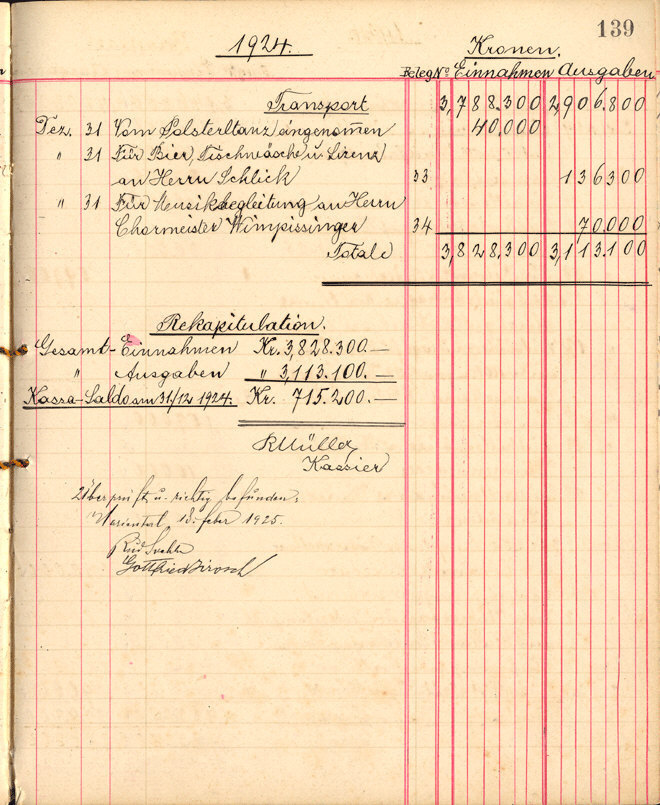 139
1924. Kronen.
Beleg Nº Einnahmen Ausgaben
Transport 3,788.300 2,906.800
Dez. 31 Vom Polsterltanz angenom̄en 40.000
" 31 Für Bier, Tischwäsche u. Lizenz
an Herrn Schlick 33 136300
" 31 Für Musikbegleitung an Herrn
Chormeister Wimpissinger 34 70.000
Totale 3,828.300 3,113.100
Rekapitulation.
Gesamt-Einnahmen Kr. 3,828.300.—
" Ausgaben " 3,113.100.—
Kassa-Saldo am 31/12 1924. Kr. 715.200.—
RMüller
Kassier
Überprüft u. richtig befunden:
Mariental 18. feber 1925.
Rud
Gottfried